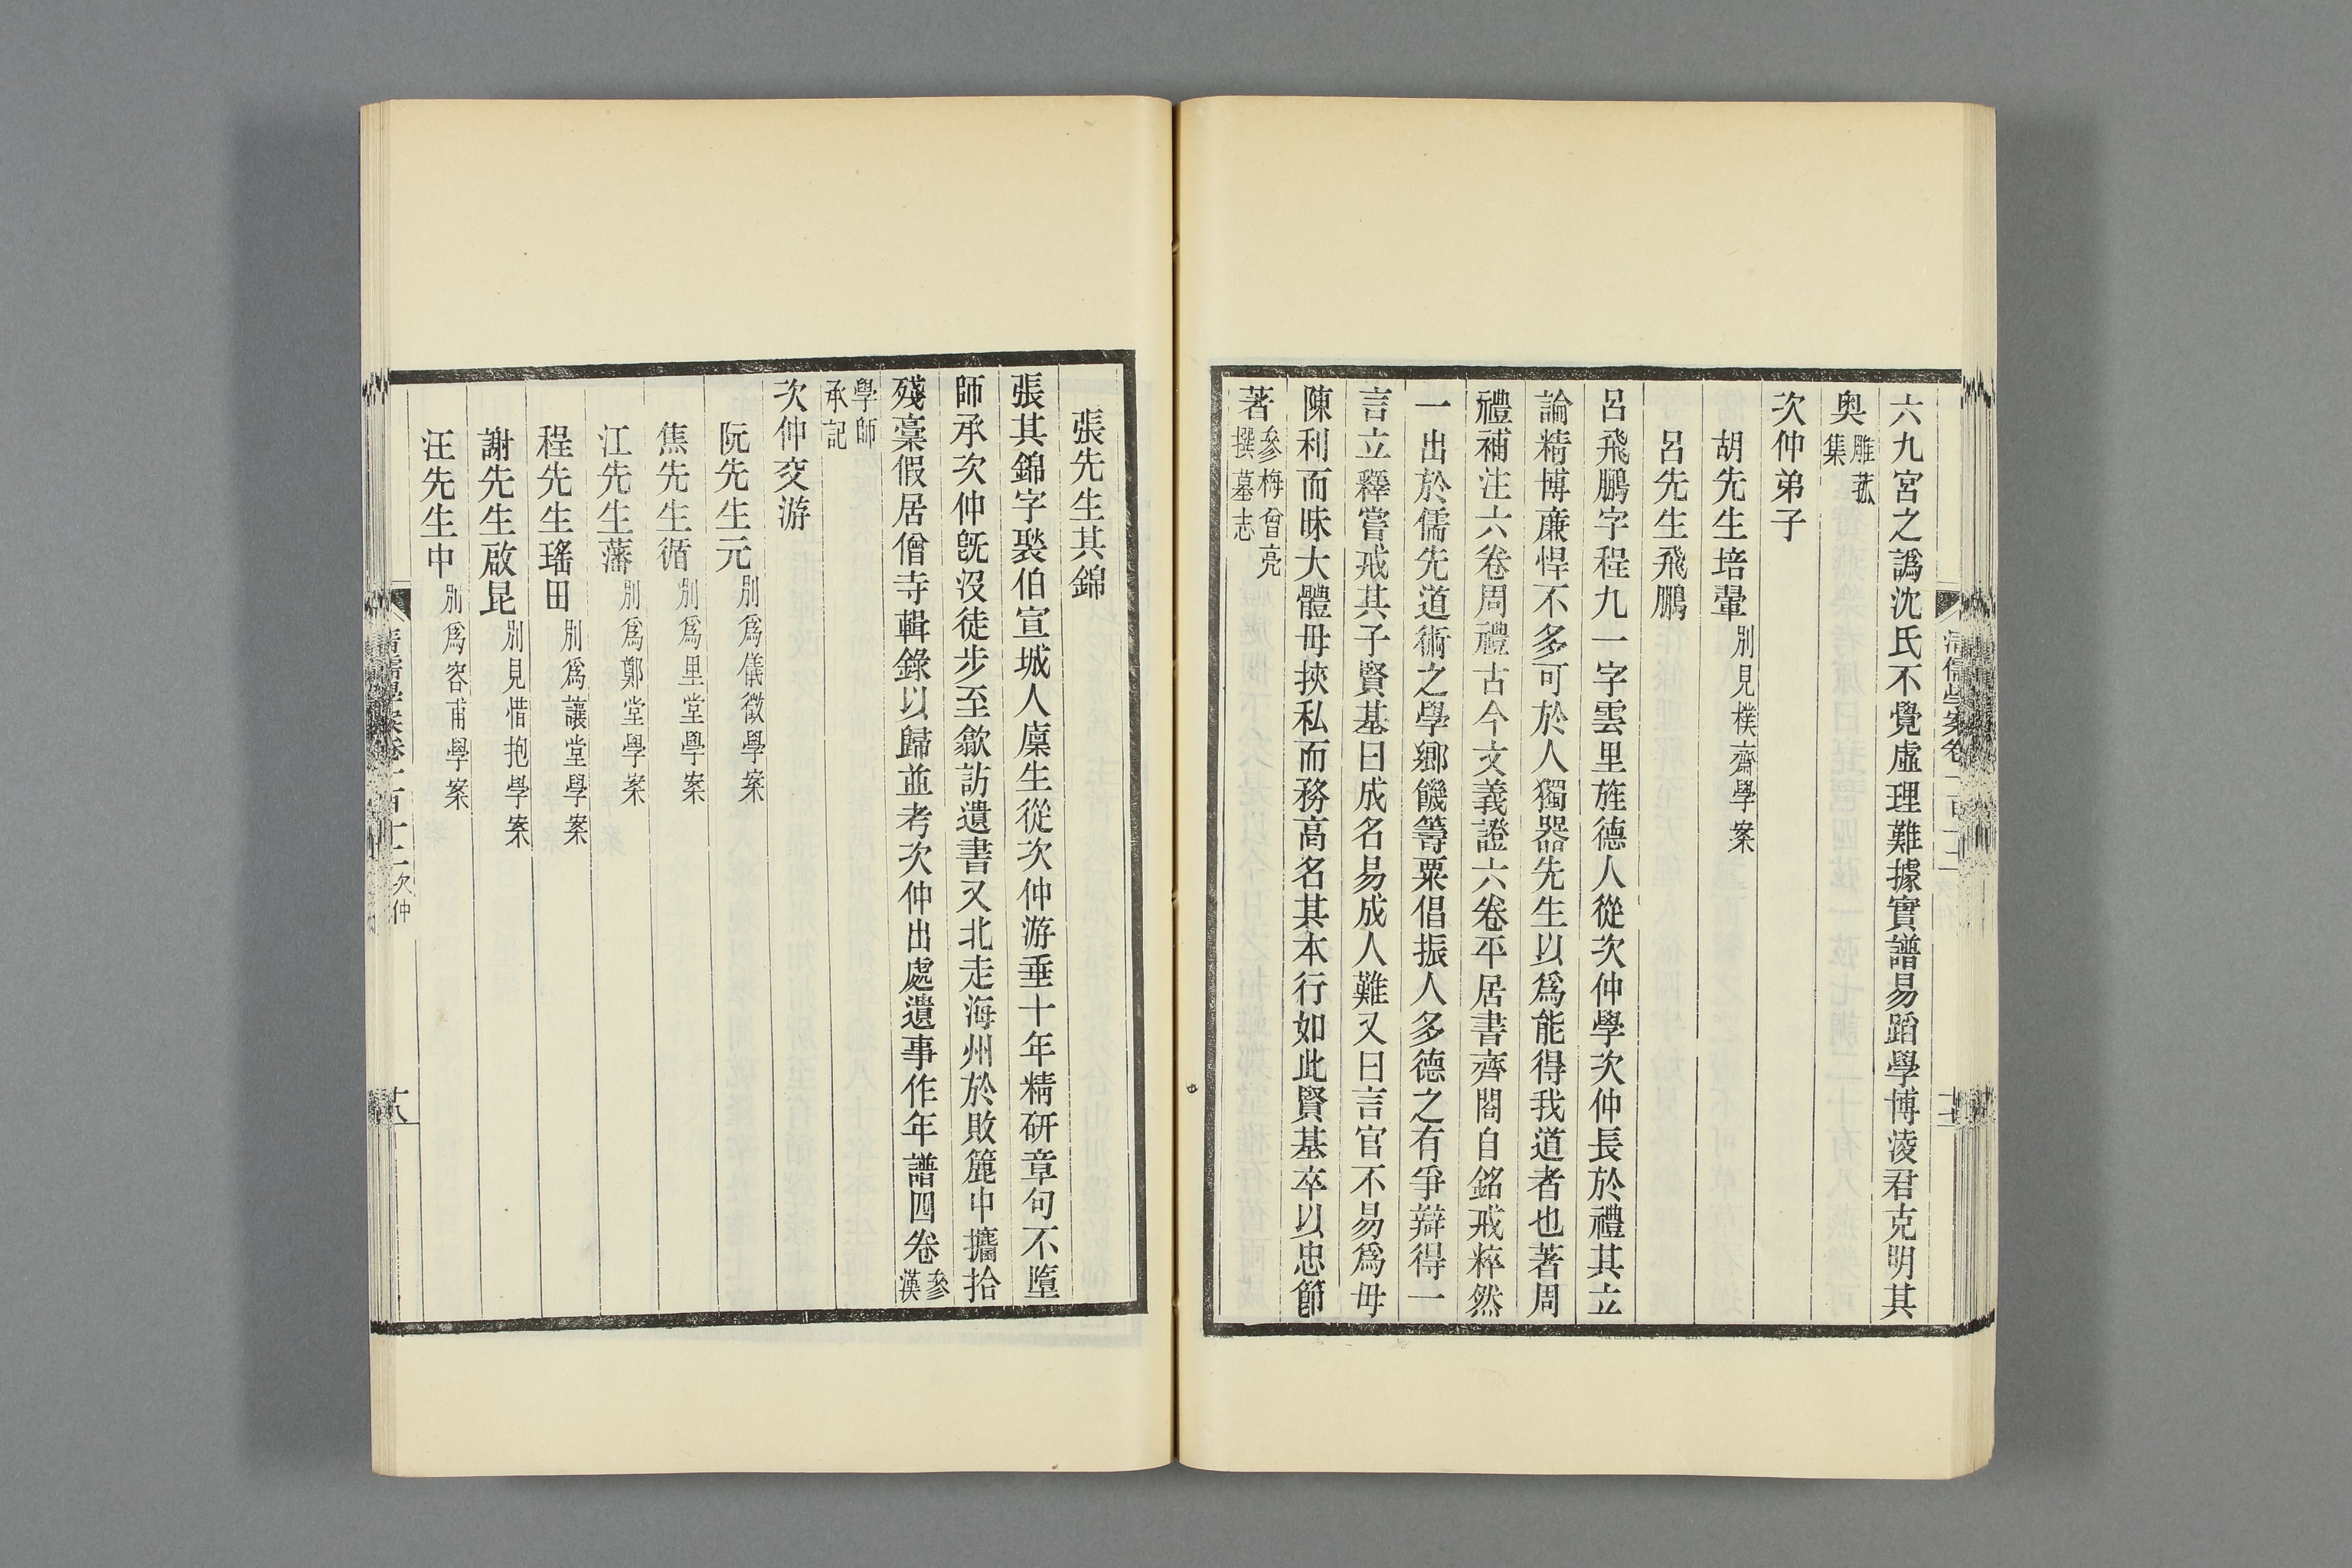 六九宮之譌沈氏不覺虛理難據實譜易蹈學博淩君克明其
奧雕菰集
次仲弟子
胡先生培翬別見樸齋學案
呂先生飛鵬
呂飛鵬字程九一字雲里旌德人從次仲學次仲長於禮其立
論精博亷悍不多可於人獨器先生以爲能得我道者也著周
禮補注六卷周禮古今文義證六卷平居書齊閤自銘戒粹然
一出於儒先道術之學鄉饑籌粟倡振人多德之有爭辯得一
言立釋嘗戒其子賢基曰成名易成人難又曰言官不易爲毋
陳利而昧大體毋挾私而務高名其本行如此賢基卒以忠節
著參梅曾亮撰墓志
張先生其錦
張其錦字褧伯宣城人廩生從次仲游垂十年精研章句不墮
師承次仲旣沒徒步至歙訪遺書又北走海州於敗簏中攟拾
殘稾假居僧寺輯錄以歸並考次仲出處遺事作年譜四卷參漢
學師承記
次仲交游
阮先生元別爲儀徵學案
焦先生循別爲里堂學案
江先生藩別爲鄭堂學案
程先生瑤田別爲讓堂學案
謝先生啟昆別見惜抱學案
汪先生中別爲容甫學案
清儒學案卷一百十二 次仲
十八